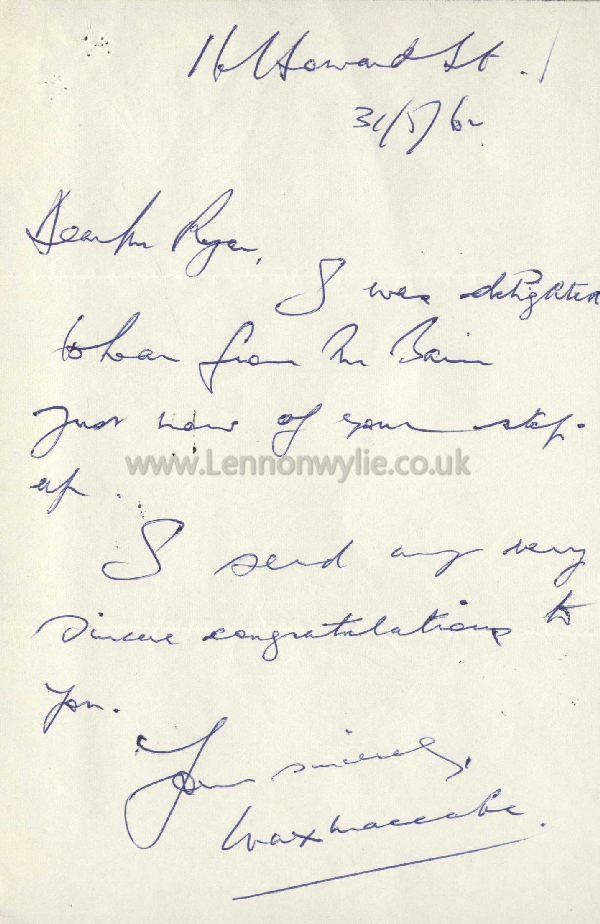 Howard St.
31/5/62
Dear Mr Ryan,
I was delighted
to hear from Mr Bain
just now of your step-
up.
www.Lennonwylie.co.uk
I send my very
sincere congratulations to
you.
Yours sincerely,